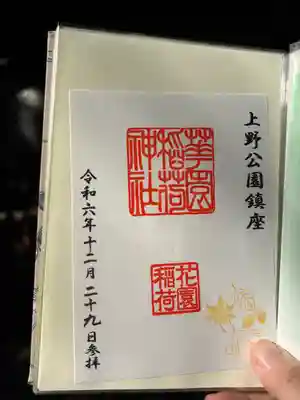 上野公園鎮座
華園稲荷神社
花園稲荷
令和六年十二月二十九日参拝